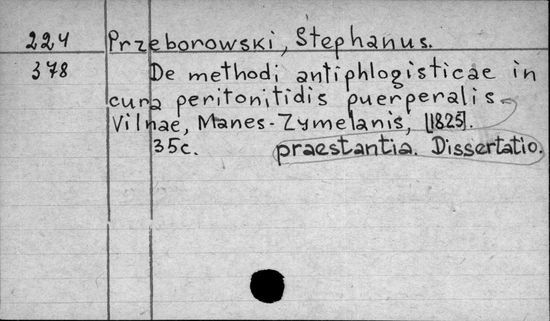 224 Przeborowski, Stephanus.
378 De methodi antiphlogisticae in
cura peritonitidis puerperalis
Vilnae, Manes-Zymelanis, [1825].
35c. praestantia. Dissertatio.